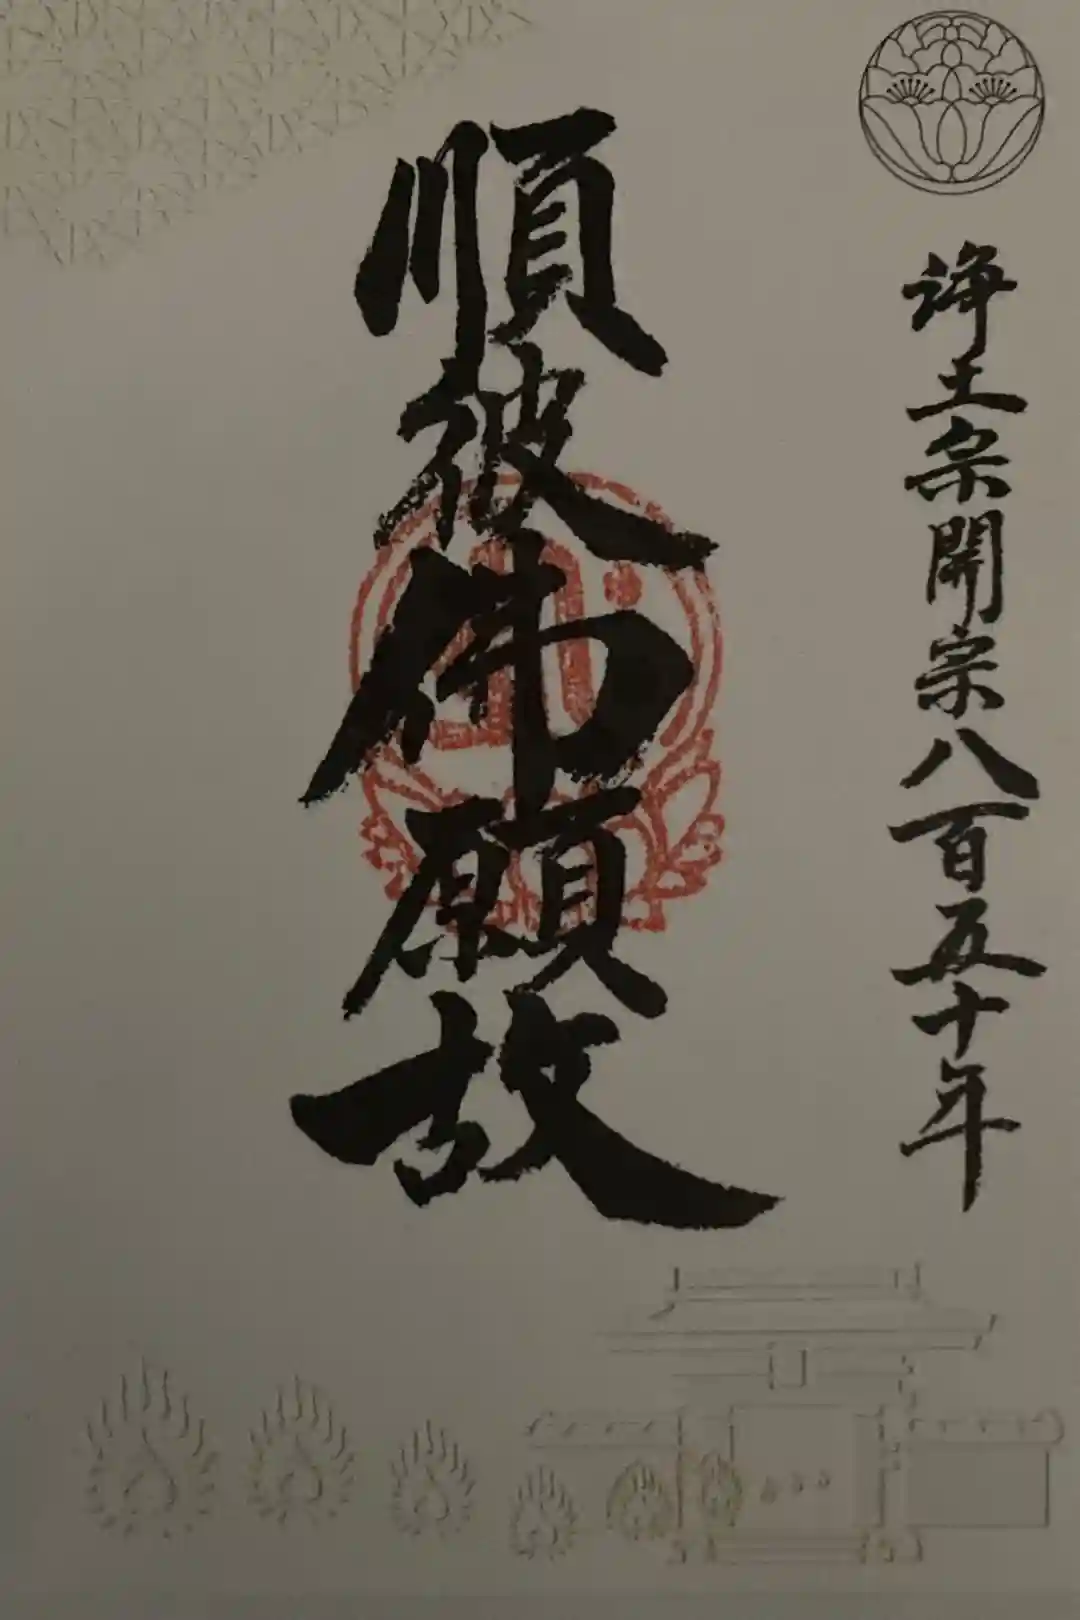 淨土宗開宗八百五十年
順彼佛願故